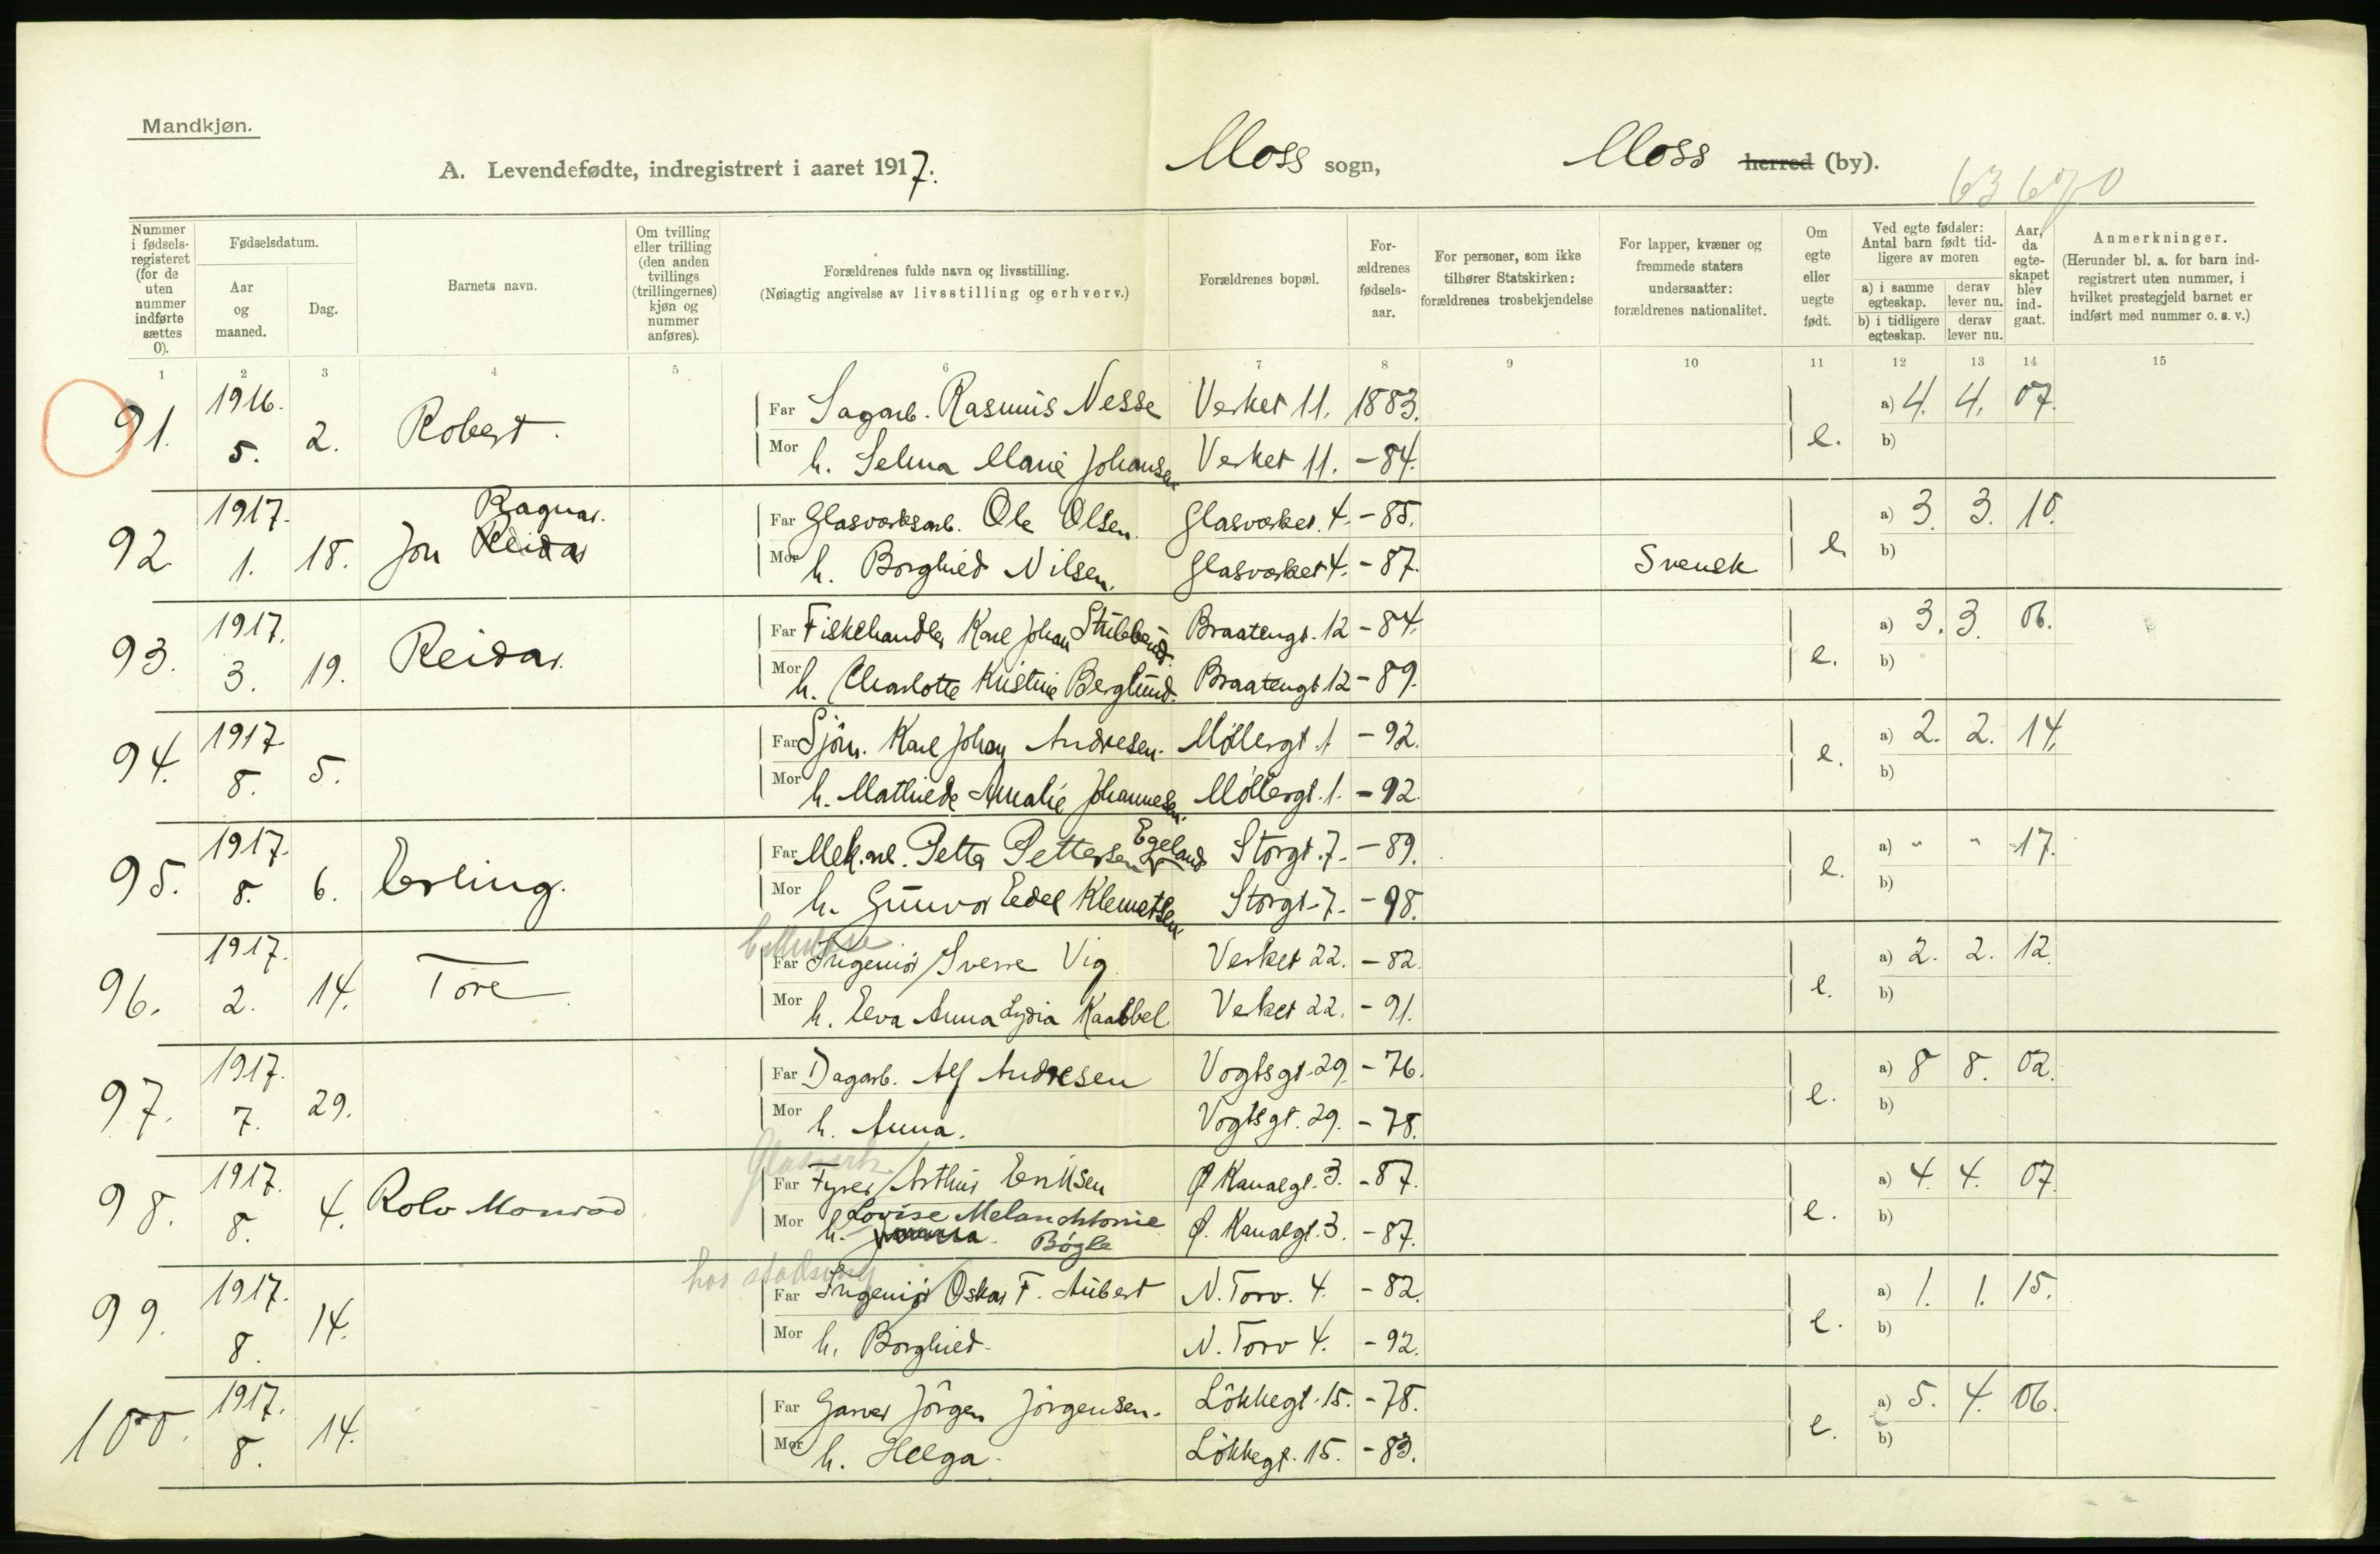 Mandkjøn.
A. Levendefødte, indregistrert i aaret 1917. Moss sogn, Moss herred (by).
63670
Nummer i fødsels-registeret (for de uten nummer indførte sættes 0).
Fødselsdatum.
Aar og maaned.
Dag.
Barnets navn.
Om tvilling eller trilling (den anden tvillings (trillingernes) kjøn og nummer anføres).
Forældrenes fulde navn og livsstilling.
(Nøiagtig angivelse av livsstilling og erhverv.)
Forældrenes bopæl.
For-ældrenes fødsels-aar.
For personer, som ikke tilhører Statskirken: forældrenes trosbekjendelse
For lapper, kvæner og fremmede staters undersaatter: forældrenes nationalitet.
Om egte eller uegte født.
Ved egte fødsler: Antal barn født tid-ligere av moren
a) i samme egteskap.
derav lever nu.
b) i tidligere egteskap.
derav lever nu.
Aar, da egte-skapet blev ind-gaat.
Anmerkninger.
(Herunder bl. a. for barn ind-registrert uten nummer, i hvilket prestegjeld barnet er indført med nummer o. s. v.)
1 2 3 4 5 6 7 8 9 10 11 12 13 14 15
91. 1916. 5. 2. Robert.
Far Sagarb. Rasmus Nesse Verket 11. 1883. a) 4. 4. 07.
Mor h. Selma Marie Johansen Verket 11. -84. e. b)
92 1917. 1. 18. Jon Reidar Ragnar.
Far Glasværksarb. Ole Olsen. Glasværket. 4. -85. a) 3. 3. 10.
Mor h. Borghild Nilsen. Glasværket 4. -87. Svensk e. b)
93. 1917. 3. 19. Reidar.
Far Fiskehandler Karl Johan Stubberud. Braatengt. 12 -84. a) 3. 3. 06.
Mor h. Charlotte Kristine Berglund. Braatengt 12 -89. e. b)
94. 1917. 8. 5.
Far Sjöm. Karl Johan Andresen. Möllergt 1 -92. a) 2. 2. 14.
Mor h. Mathilde Amalie Johannesen. Möllergt. 1. -92. e. b)
95. 1917. 8. 6. Erling.
Far Mek. arb. Petter Pettersen Egeland Storgt. 7. -89. a) - - 17.
Mor h. Gunvor Edel Klemetsen Storgt. 7. -98. e. b)
96. 1917. 2. 14. Tore
Cellulose
Far Ingeniør Sverre Vig Verket 22. -82. a) 2. 2. 12.
Mor h. Eva Anna Lydia Kaabbel. Verket 22. -91. e. b)
97. 1917. 7. 29.
Far Dagarb. Alf Andresen Vogtsgt. 29. -76. a) 8 8. 02.
Mor h. Anna. Vogtsgt. 29. -78. e. b)
98. 1917. 8. 4. Rolv Monrad
Glasverk.
Far Fyrer Arthur Eriksen Ø Kanalgt. 3. -87. a) 4. 4. 07.
Mor h. Lovise Melanchtonie Bøgle Ø. Kanalgt. 3. -87. e. b)
99. 1917. 8. 14.
hos stadsing
Far Ingeniør Oskar F. Aubert N. Torv. 4. -82. a) 1. 1. 15.
Mor h. Borghild. N. Torv 4. -92. e. b)
100. 1917. 8. 14.
Far Garver Jörgen Jörgensen. Lökkegt. 15. -78. a) 5. 4. 06.
Mor h. Helga. Lökkegt. 15. -83. e. b)